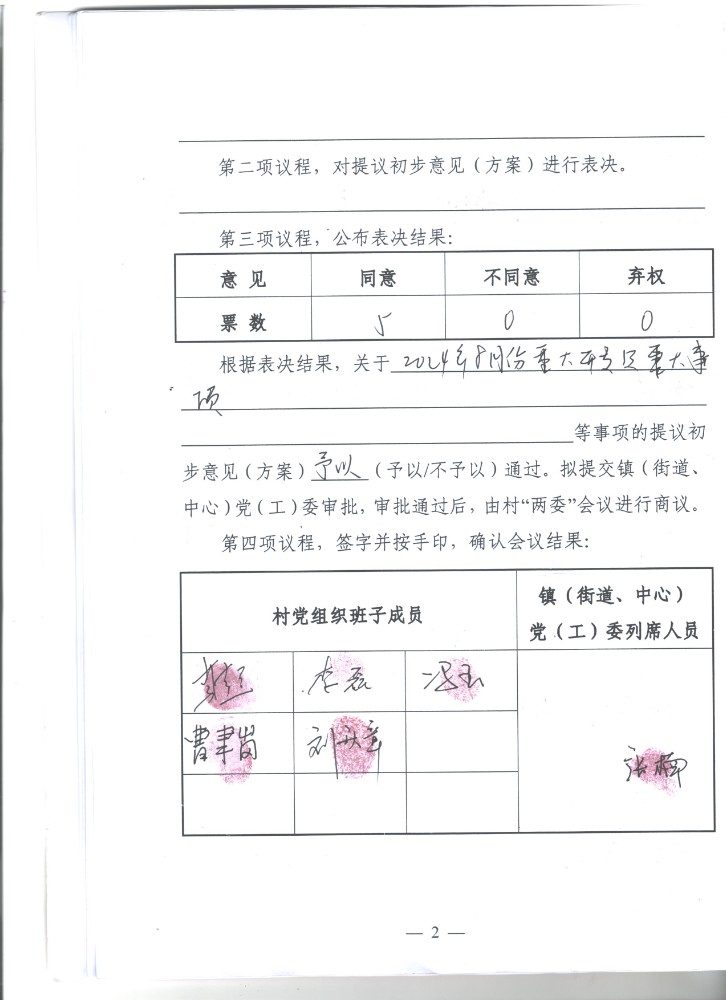 第二项议程，对提议初步意见（方案）进行表决。
第三项议程，公布表决结果：
意 见 同意 不同意 弃权
票 数 5 0 0
根据表决结果，关于 2024年8月份重大开支及重大事
项
等事项的提议初
步意见（方案）予以（予以/不予以）通过。拟提交镇（街道、
中心）党（工）委审批，审批通过后，由村“两委”会议进行商议。
第四项议程，签字并按手印，确认会议结果：
村党组织班子成员
镇（街道、中心）
党（工）委列席人员
李磊 冯玉
曹聿岗
张楠
— 2 —